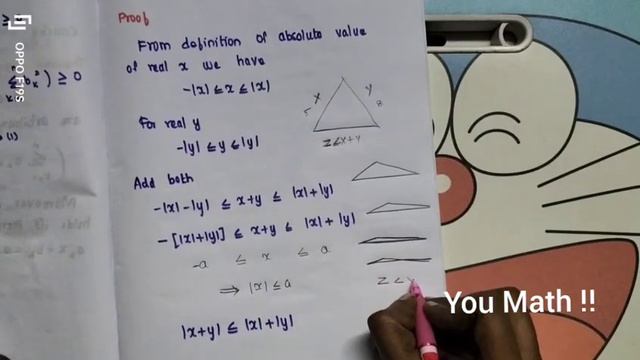 Proof
From definition of absolute value
of real x we have
-|x| ≤ x ≤ |x|
For real y
-|y| ≤ y ≤ |y|
Add both
-|x|-|y| ≤ x+y ≤ |x|+|y|
-[|x|+|y|] ≤ x+y ≤ |x|+|y|
-a ≤ x ≤ a
⟹ |x| ≤ a
|x+y| ≤ |x|+|y|
x
y
5
8
z≤x+y
z<
) ≥ 0
(1)
OPPO F19S
You Math !!